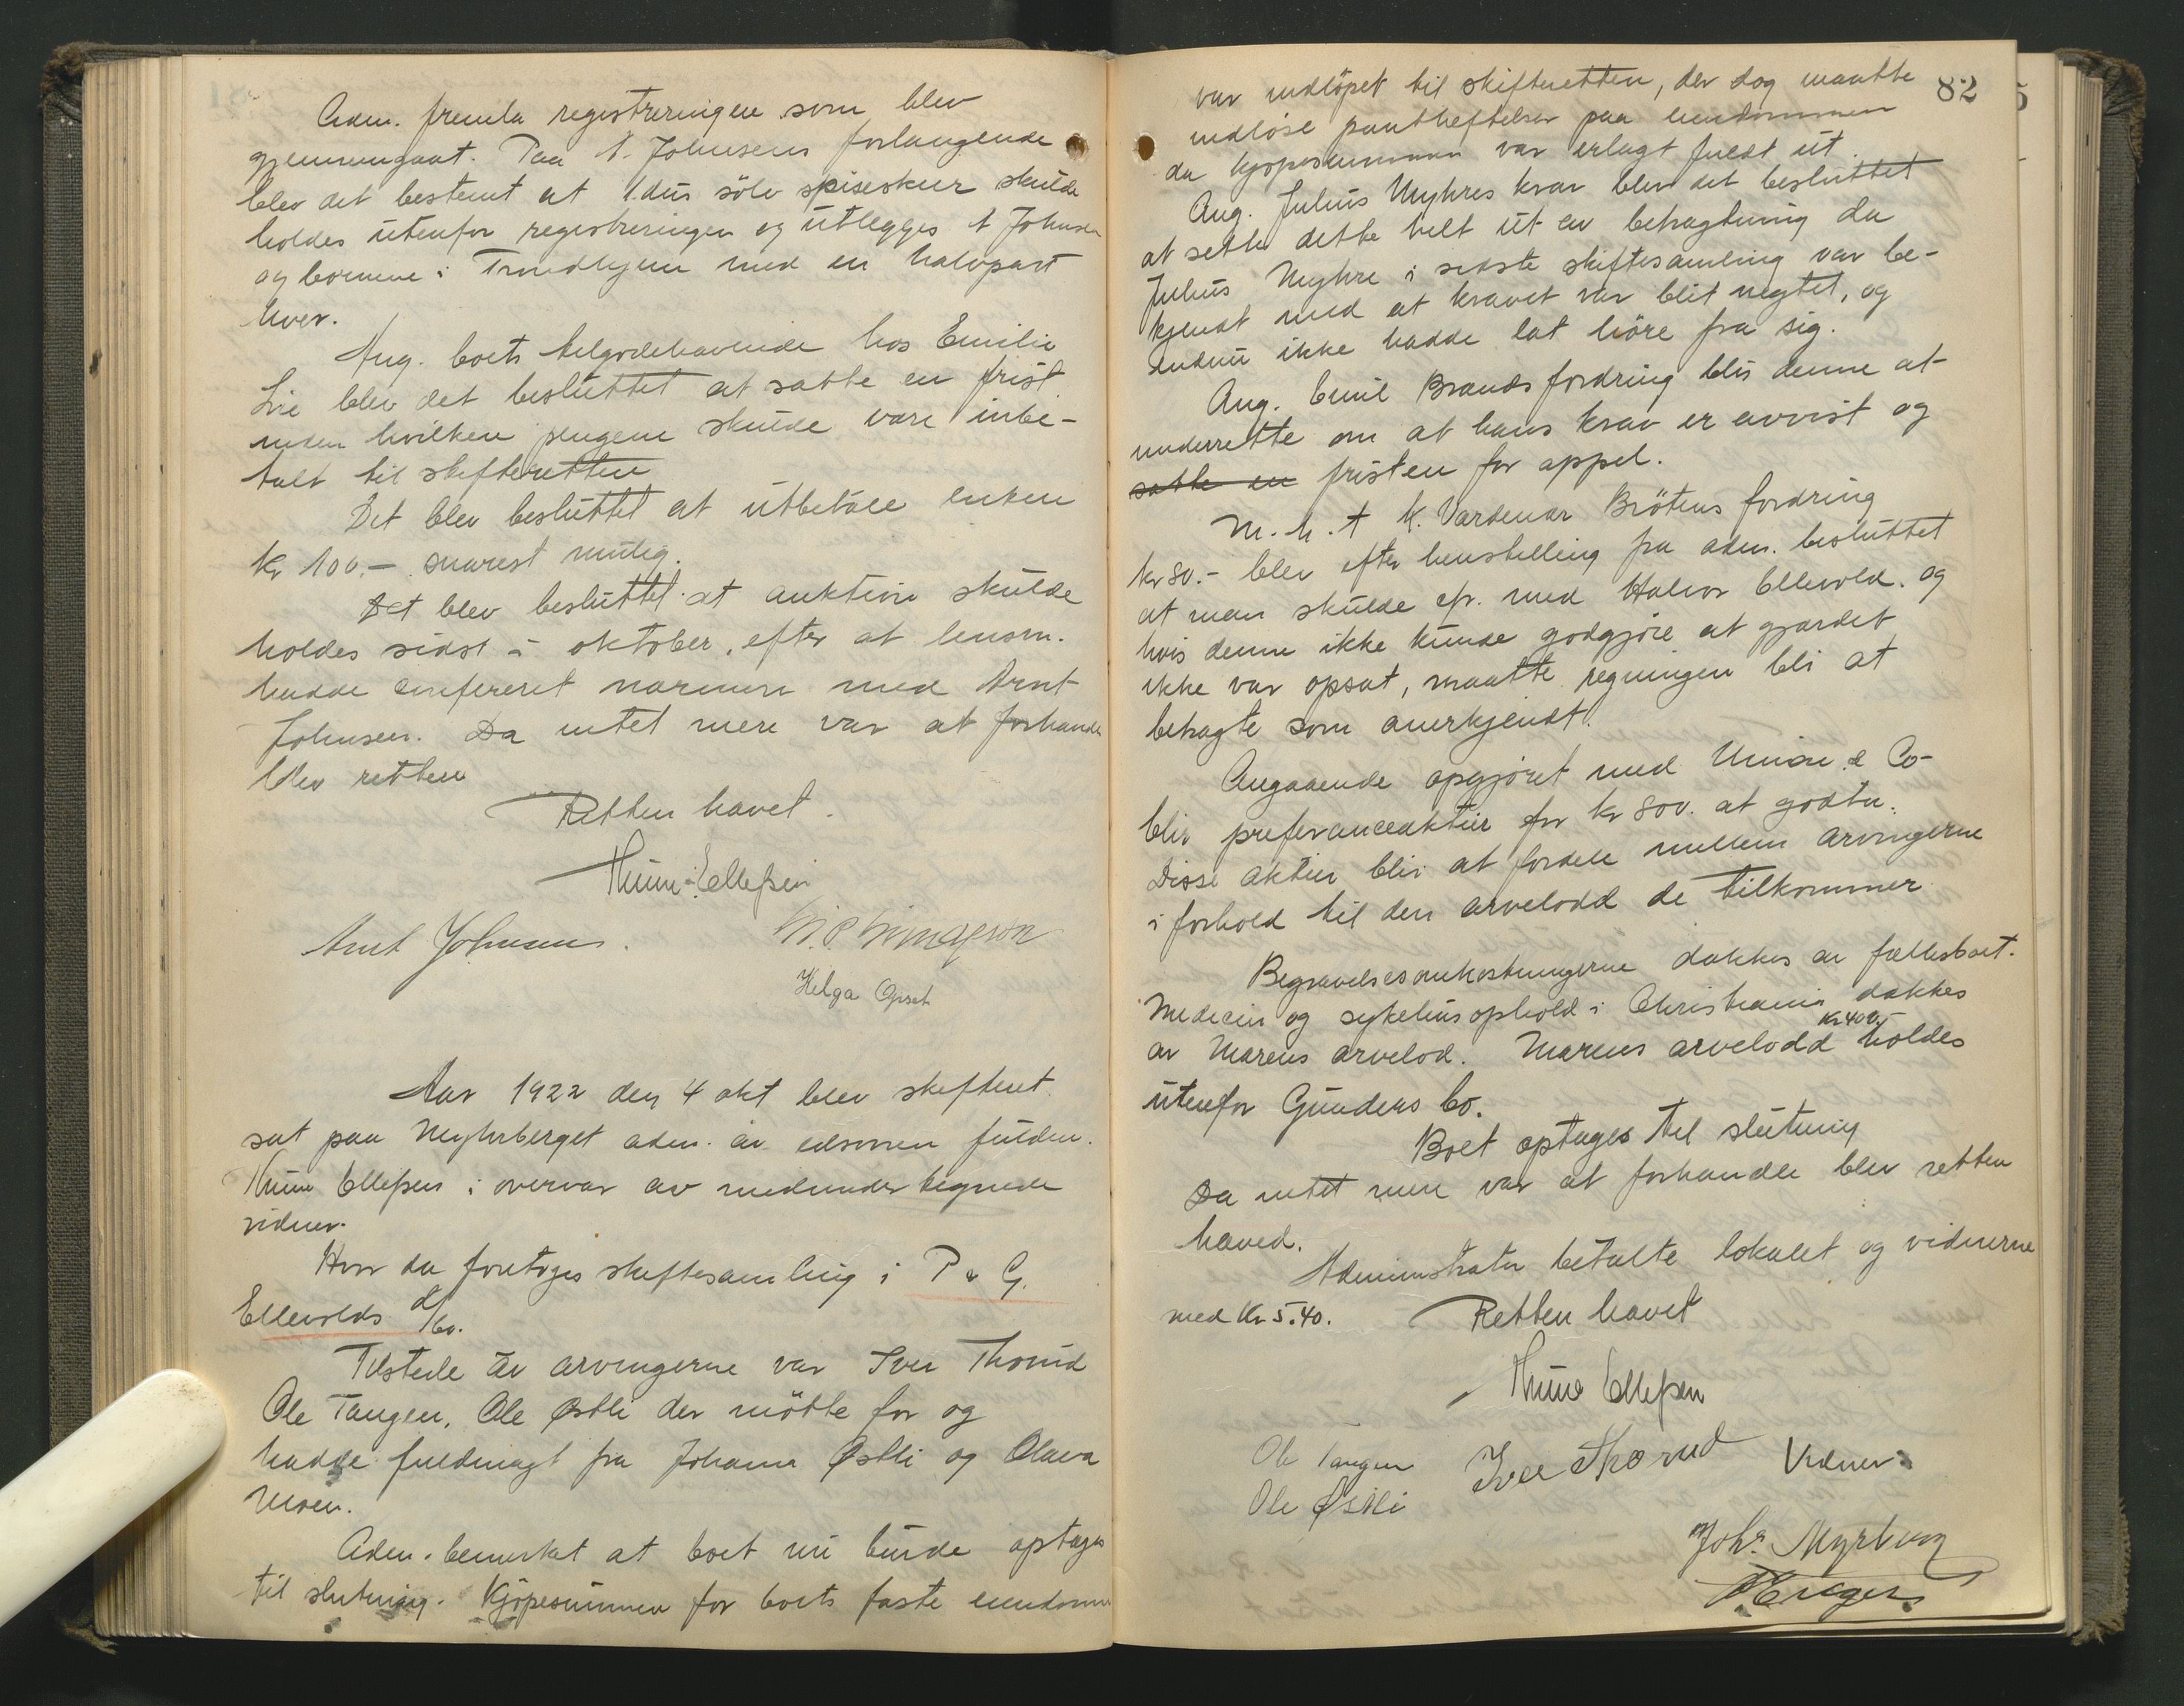 Adm. fremla registreringen som blev
gjennemgaat. Paa A. Johnsens forlangende
blev det bestemt at 1 dus sölv spiseskeer skulde
holdes utenfor registreringen og utlegges A Johnsen
og børnene i Trondhjem med en halvpart
hver.
Ang. boets tilgodehavende hos Emilie
Lie blev det besluttet at satte en frist
inden hvilken pengene skulde vare inbe-
talt til skifteretten
Det blev besluttet at utbetale enken
kr 100.- snarest mulig.
Det blev besluttet at auktion skulde
holdes sidst i oktober, efter at lensm.
hadde confereret narmere med Arnt
Johnsen. Da intet mere var at forhandle
blev retten
Retten havet.
Thune Ellefsen
Arnt Johnsen.
Helga Opset
Aar 1922 den 4 okt blev skifteret
sat paa Myhrberget adm. av edsvoren fuldm.
Thune Ellefsen i overvar av medundertegnede
vidner.
Hvor da foretoges skiftesamling i P & G.
Ellevolds d/bo.
Tilstede av arvingerne var Iver Thorud
Ole Tangen, Ole Østli der mötte for og
hadde fuldmagt fra Johanna Østli og Olava
Moen.
Adm. bemerket at boet nu burde optages
til slutning. Kjöpesummen for boets faste eiendomme
82
5
var indlöpet til skifteretten, der dog maatte
indlöse pantheftelser paa eiendommen
da kjöpesummen var erlagt fuldt ut.
Ang. Julius Myhres krav blev det besluttet
at sette dette helt ut av betragtning da
Julius Myhre i sidste skiftesamling var be-
kjendt med at kravet var blit negtet, og
endnu ikke hadde lat höre fra sig.
Ang. Emil Brands fordring blir denne at
underrette om at hans krav er avvist og
satte en fristen for appel.
M.h.t K. Vardenar Brötens fordring
kr 80.- blev efter henstilling fra adm. besluttet
at man skulde cfr. med Halvor Ellevold. og
hvis denne ikke kunde godgjöre at gjardet
ikke var opsat, maatte regningen bli at
betragte som anerkjendt.
Angaaende opgjöret med Union & Co
blir preferanceaktier for kr 800. at godta.
Disse aktier blir at fordele mellem arvingerne
i forhold til den arvelodd de tilkommer
Begravelsesomkostningerne dakkes av fallesboet.
Medicin og sykehusophold i Christiania dakkes
av Marens arvelod. Marens arvelodd kr 400.- holdes
utenfor Gunders bo.
Boet optages til slutning
Da intet mere var at forhandle blev retten
haved.
Administrator betalte lokalet og vidnerne
med kr 5.40. Retten havet
Thune Ellefsen
Ole Tangen Iver Thorud Vidner:
Ole Østli
Johs Myrberg